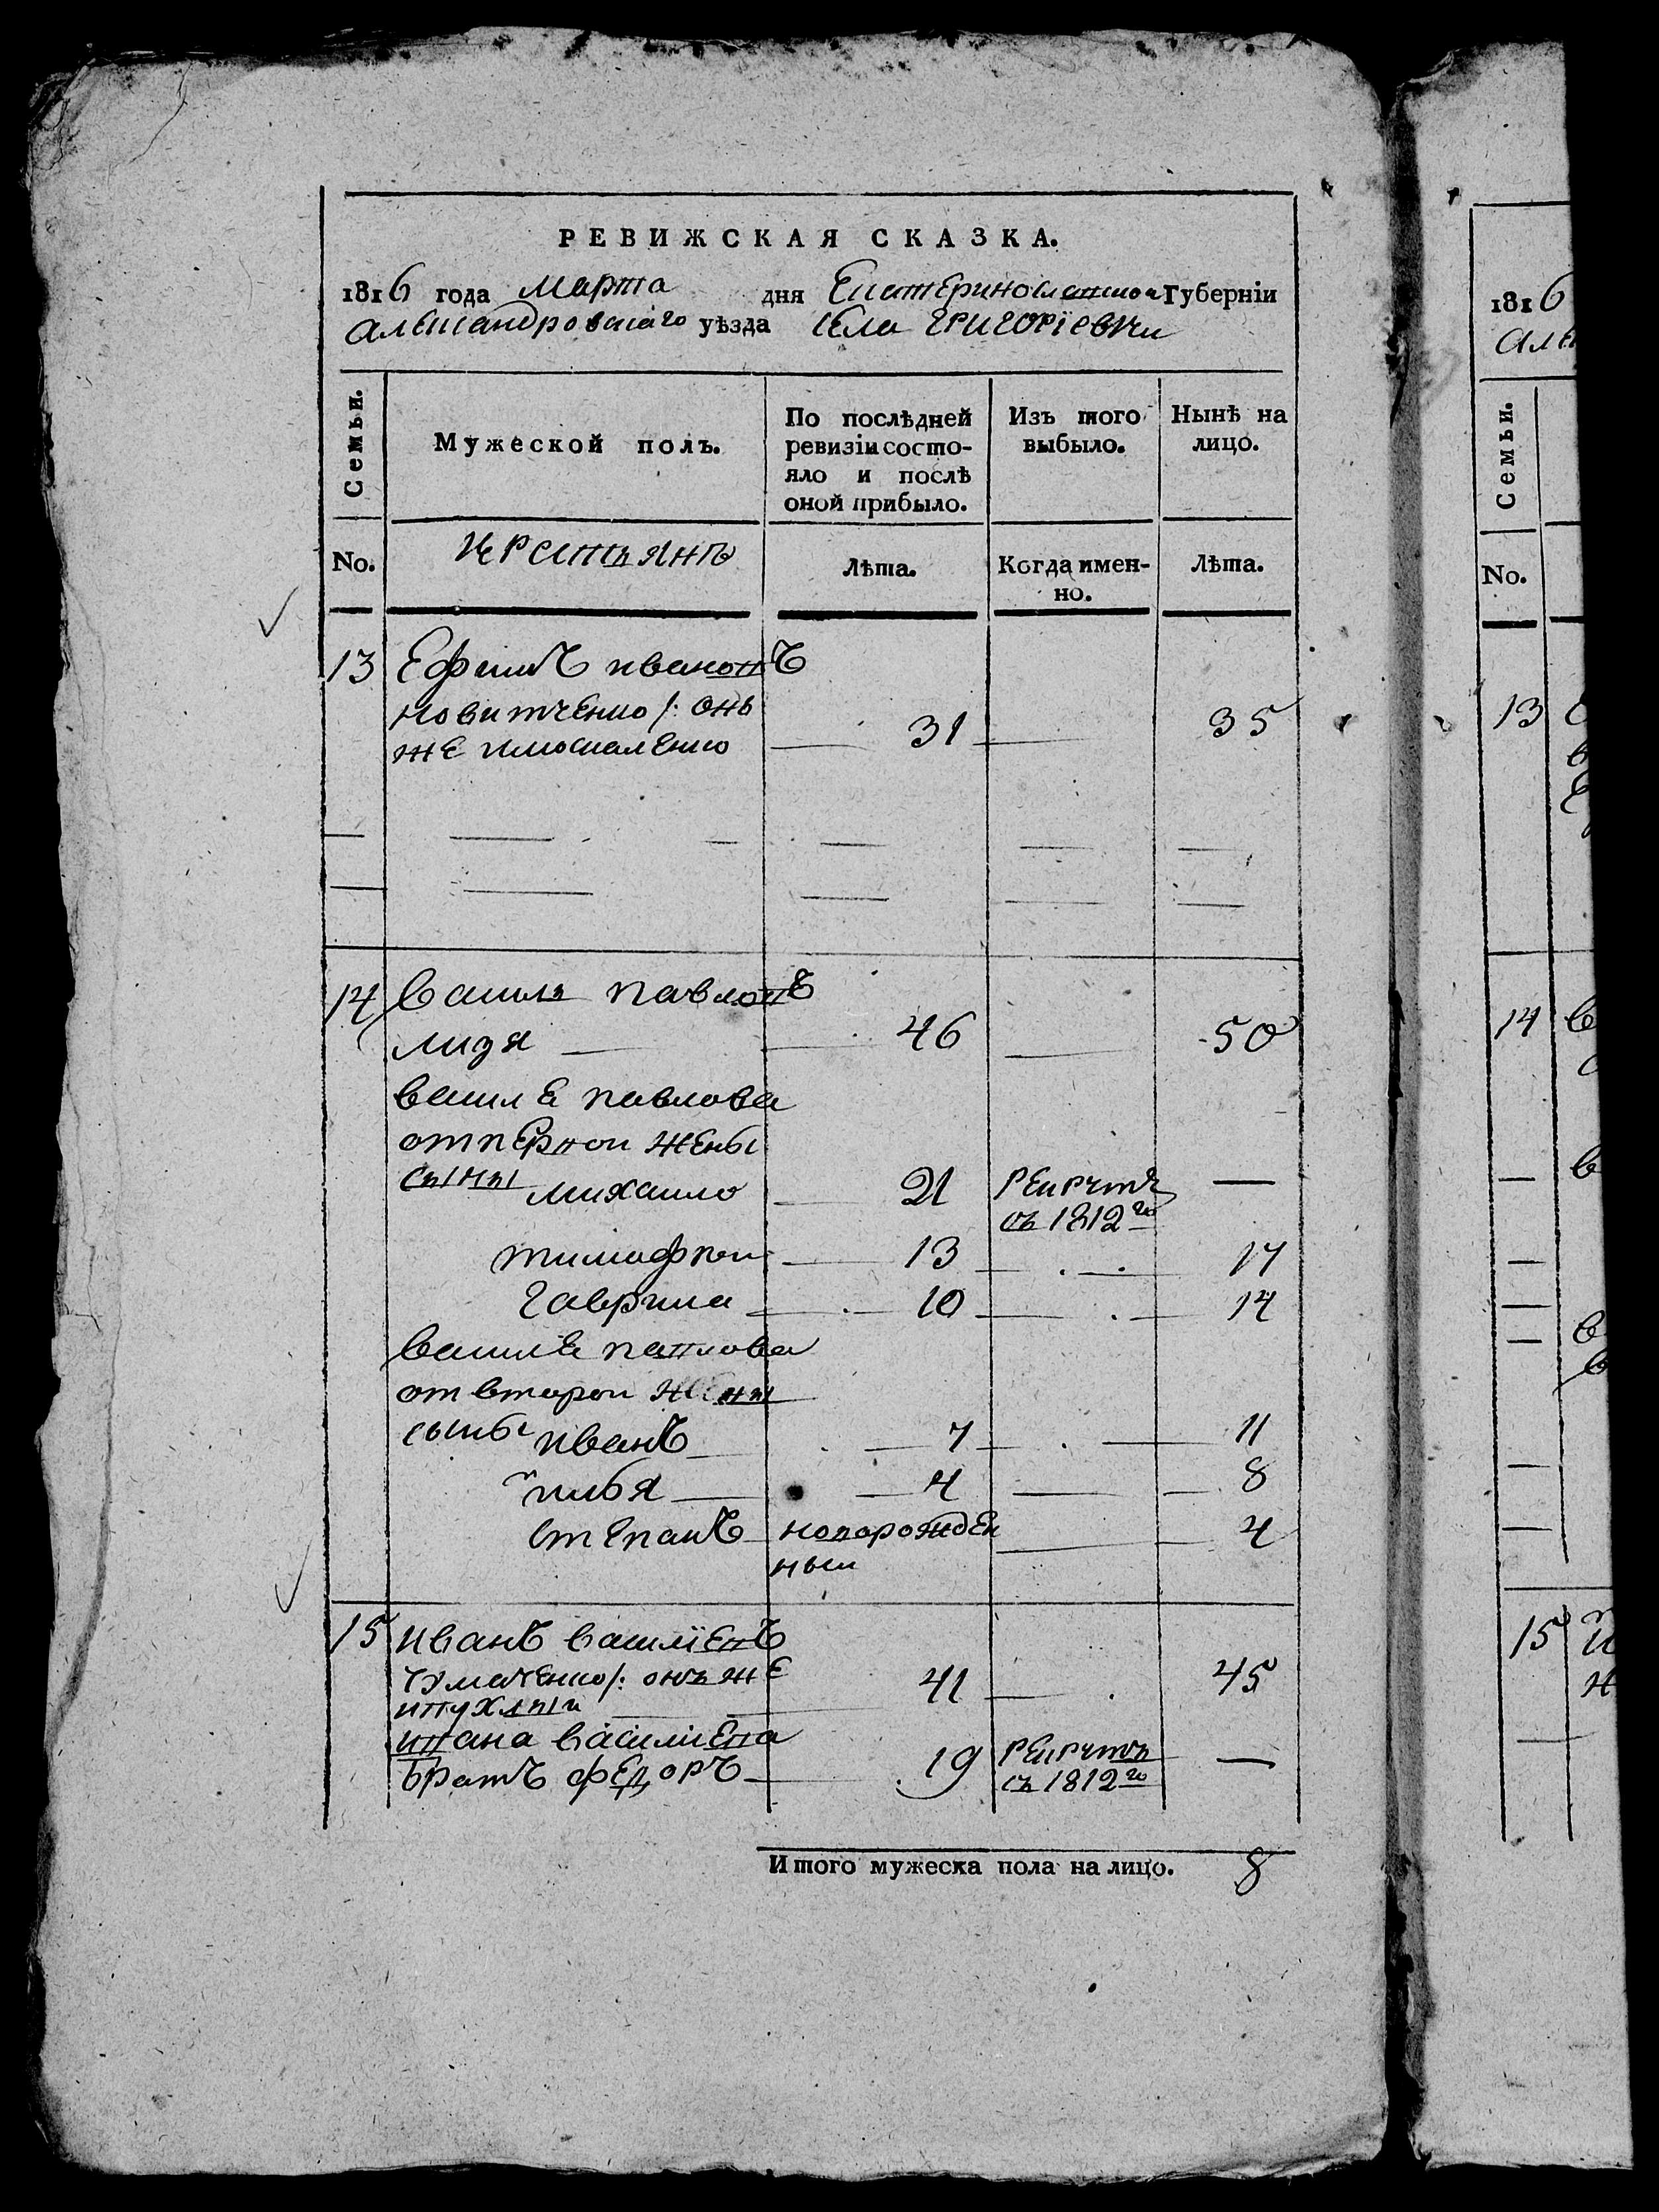 РЕВИЖСКАЯ СКАЗКА.
1816 года марта дня Екатеринославской Губернїи
Александровскаго уѣзда села Григорїевки
Семьи.
Мужеской полъ.
По послѣдней ревизїи состо-
яло и послѣ
оной прибыло.
Изъ того выбыло.
Нынѣ на лицо.
No.
крестьянъ
Лѣта.
Когда имен-
но.
Лѣта.
13 Ефимъ ивановъ
новитченко /: онъ
же 31 35
14 василь павловъ
лидя 46 50
василя павлова
от первой жены
сыны михаило 21 рекрутъ —
съ 1812го
тимофѣй 13 17
гаврила 10 14
василя павлова
от второй жены
сыны иванъ 7 11
илья 4 8
степанъ новорожден 4
ный
15 иванъ василїевъ
чумаченко /: онъ же 41 45
ивана василиева
братъ федоръ 19 рекрутъ —
съ 1812го
Итого мужеска пола на лицо. 8
1816
Але
Семьи.
No.
13
14
15